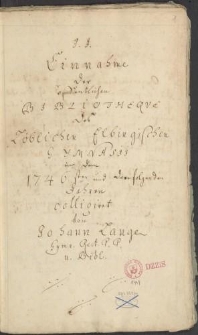 J. J.
Einnahme
Der
offentlichen
BIBLIOTHEQVE
des
Löblichen Elbingischen
GYMNASII
in dem
1740sten und denen folgenden
Jahren
colligiret
von
Johann Lange
Gymn. Rect. P. P.
u. Bibl.